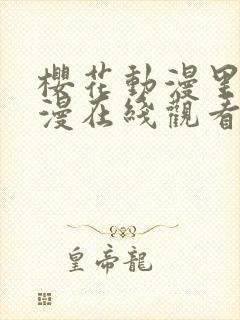 櫻花動漫里
漫在綫觀看
皇帝龍